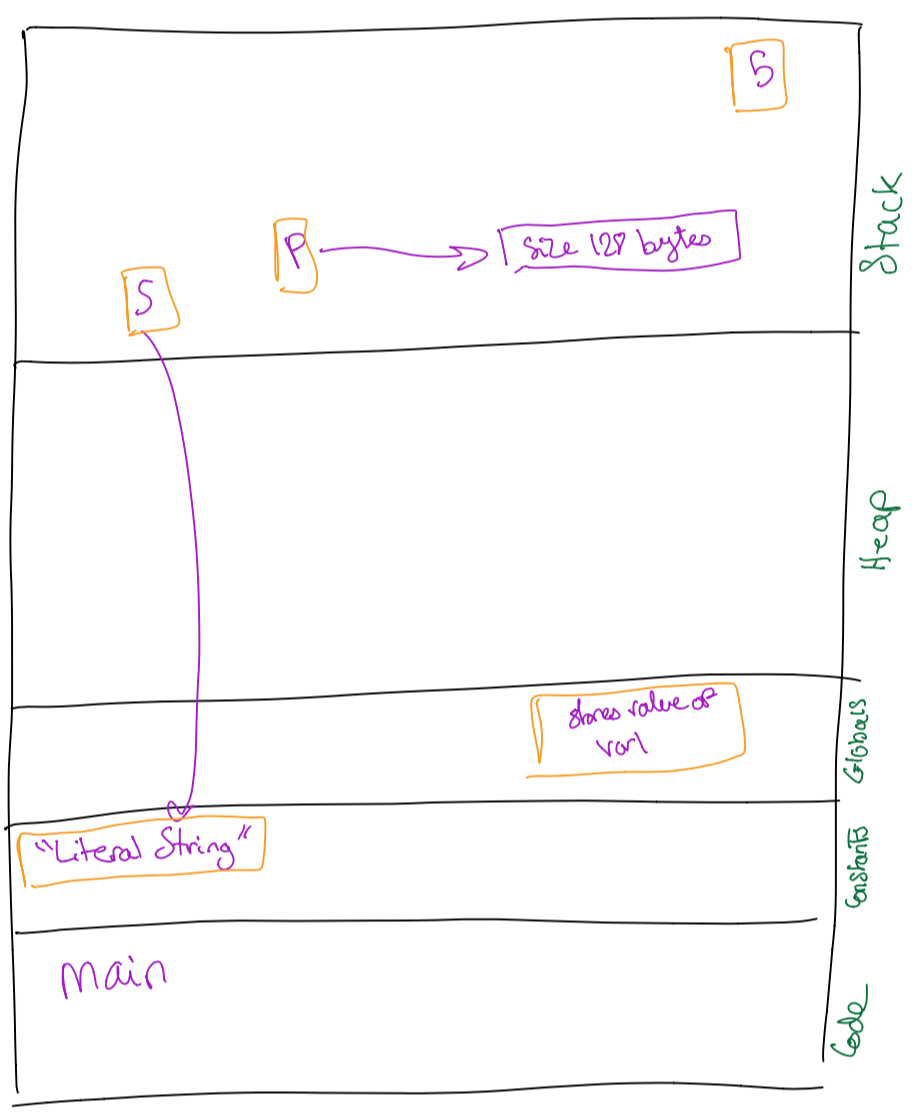 5
Stack
P
Size 128 bytes
S
Heap
stores value of
var1
Globals
"Literal String"
Constants
Main
Code